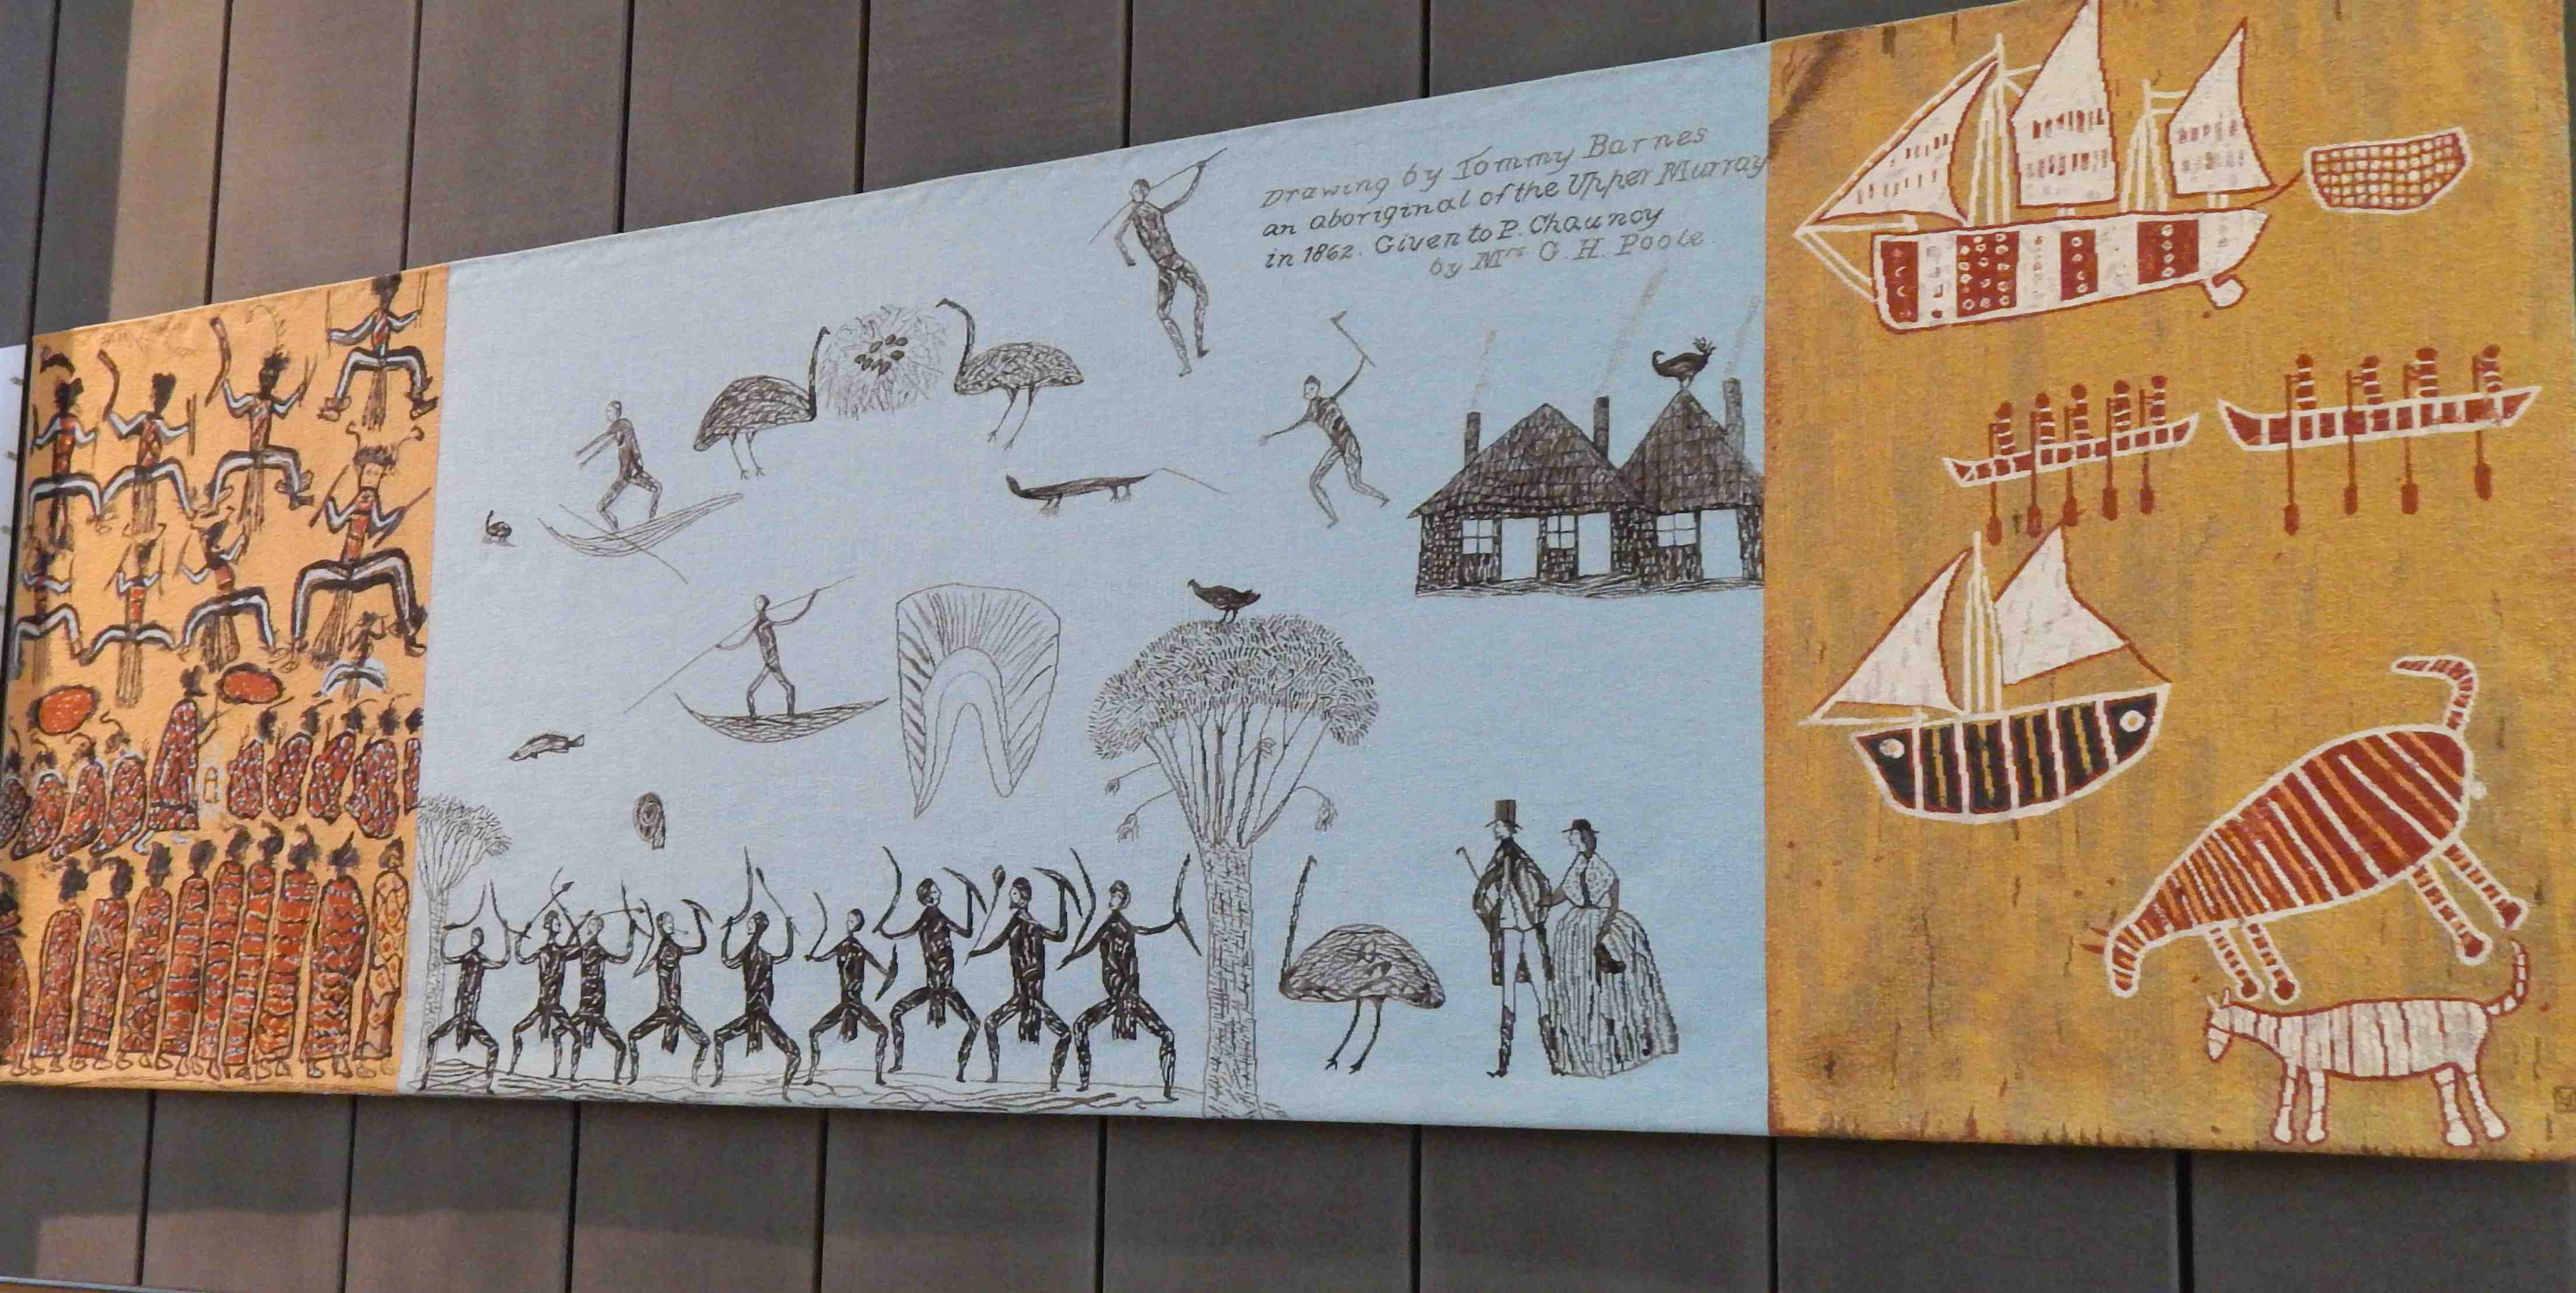 Drawing by Tommy Barnes
an aboriginal of the Upper Murray
in 1862. Given to P. Chauncy
by Mrs G. H. Poole.